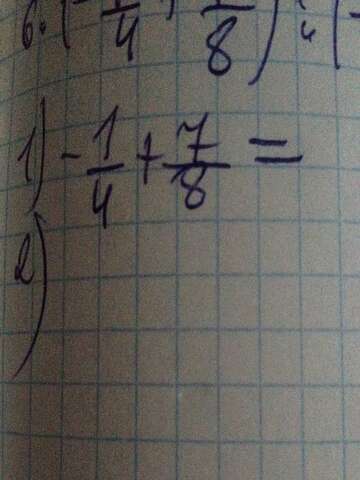 6. (-1/4 + 7/8) : (-
1) -1/4 + 7/8 =
2)